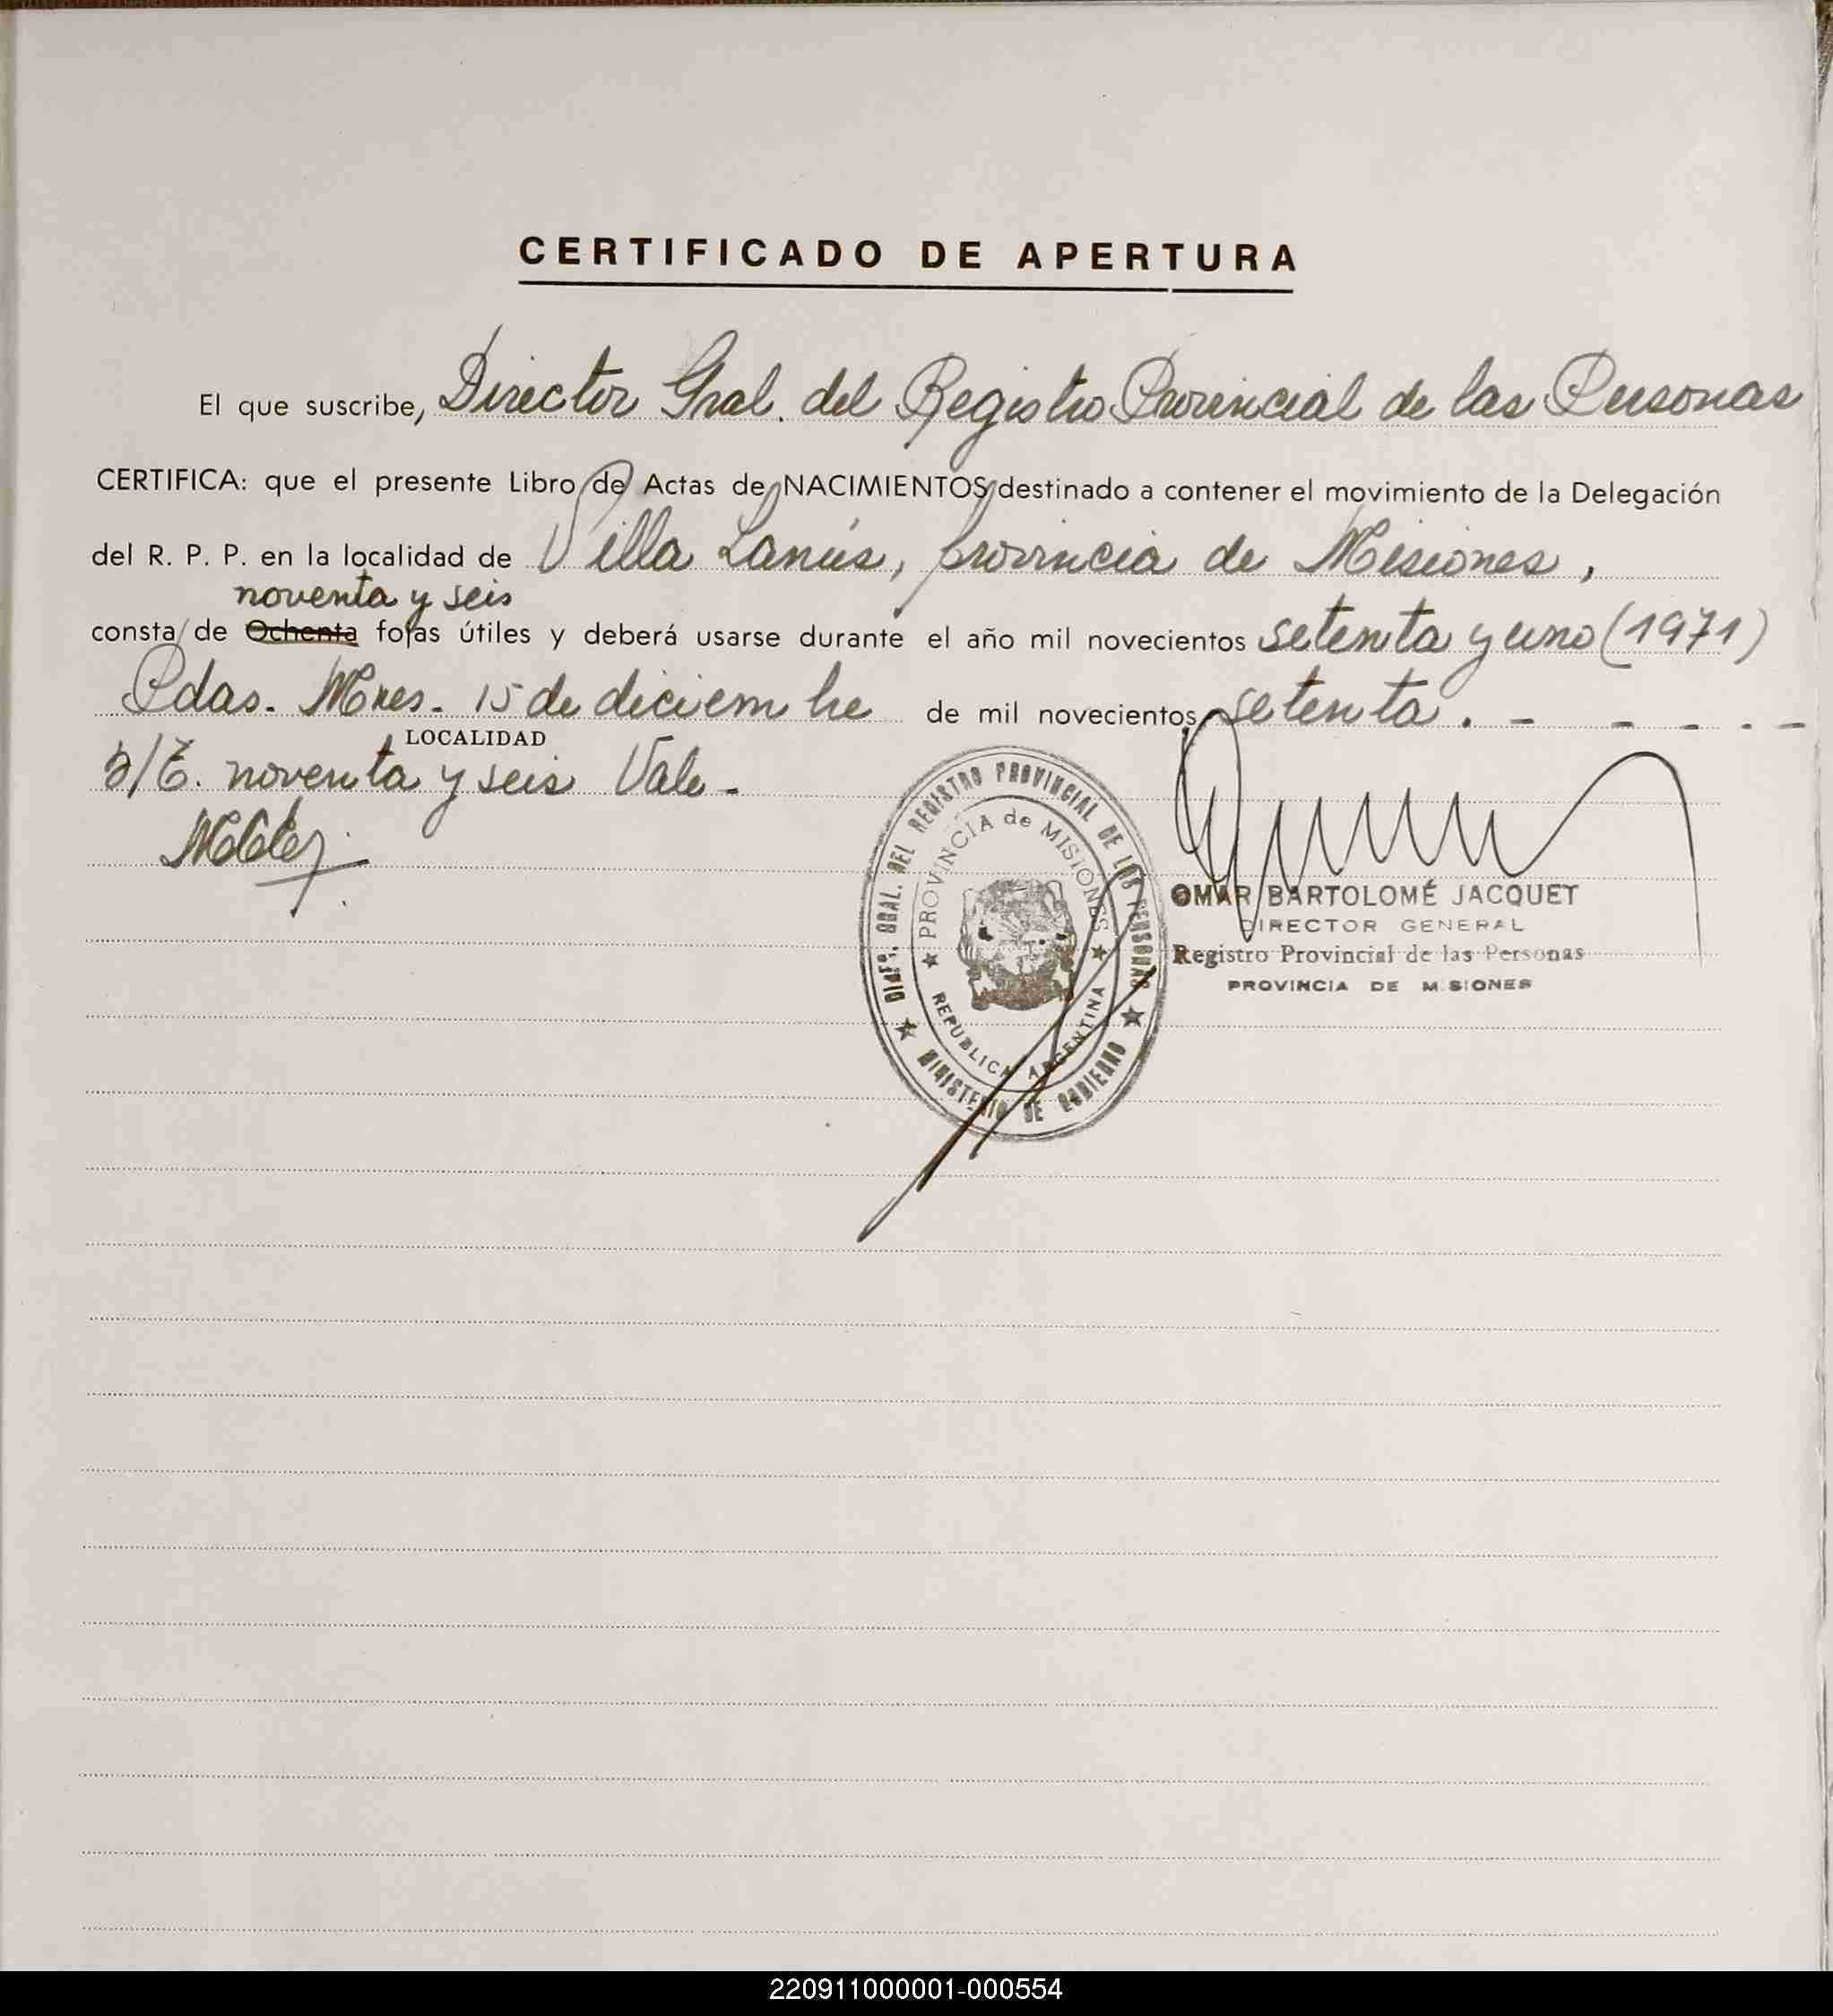 CERTIFICADO DE APERTURA
El que suscribe, Director Gral. del Registro Provincial de las Personas
CERTIFICA: que el presente Libro de Actas de NACIMIENTOS destinado a contener el movimiento de la Delegación
del R. P. P. en la localidad de Villa Lanús, provincia de Misiones,
noventa y seis
consta de Ochenta fojas útiles y deberá usarse durante el año mil novecientos setenta y uno (1971)
Pdas. Mnes. 15 de diciembre de mil novecientos setenta. - - - - -
LOCALIDAD
noventa y seis Vale -
DIREC. GRAL. DEL REGISTRO PROVINCIAL DE LAS PERSONAS
PROVINCIA de MISIONES
REPUBLICA ARGENTINA
MINISTERIO DE GOBIERNO
OMAR BARTOLOMÉ JACQUET
DIRECTOR GENERAL
Registro Provincial de las Personas
PROVINCIA DE MISIONES
220911000001-000554